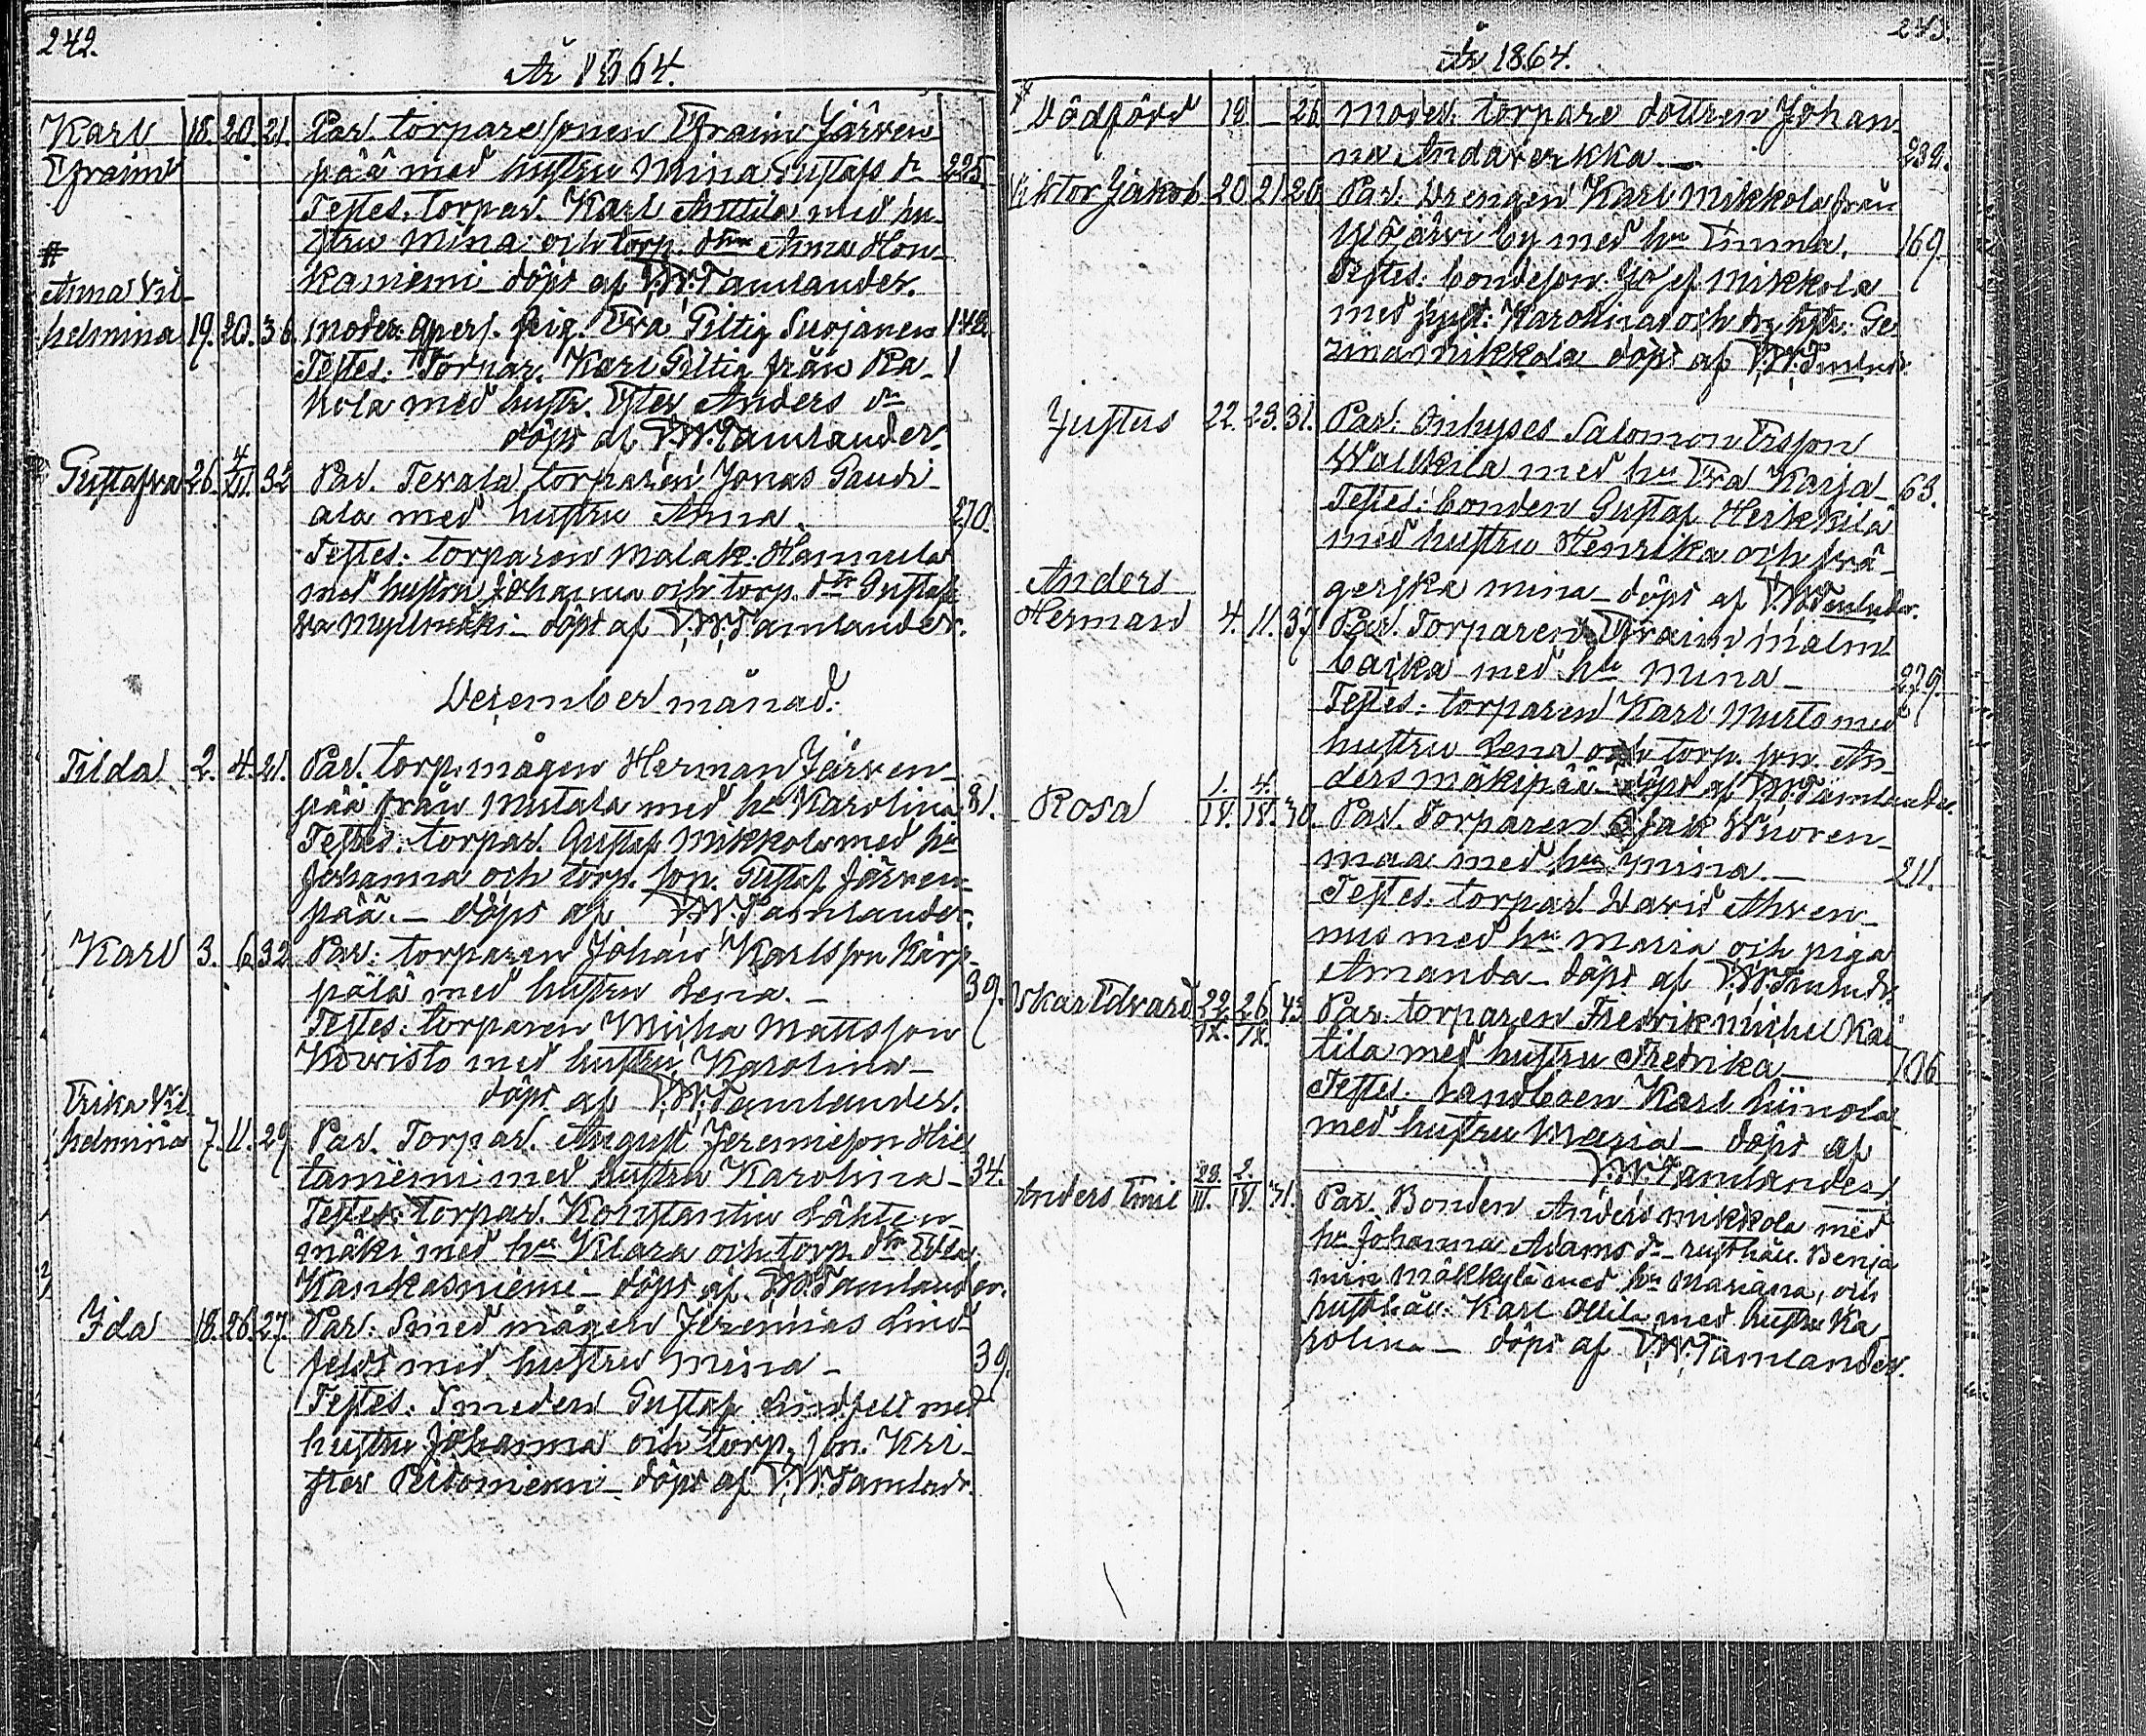 242.
År 1864.
Karl 18. 20. 21. Par. torpare sonen Efraim Järven
Efraim pää med hustru Mina Gustafs dr 225
Testes. torpar. Karl Anttila med hu-
stru Mina och torp. dtr Anna Hon
#
kaniemi döpt af V.W.Tamlander.
Anna Vil-
helmina 19. 20. 36. moder: qpers. pig. Eva Piltig Suojanen 142.
Testes. Torpar. Karl Piltig från Ra- 1
kola med hustr. Ester Anders dr
döpt af V.W.Tamlander.
Gustafva 26. 4/XII. 32 Par. Tevala torparen Jonas Pauti-
ala med hustru Anna. 270.
Testes. torparen Malak. Hannula
med hustru Johanna och torp. dtr Gustaf-
va Myllymäki - döpt af V.W.Tamlander.
December månad.
Tilda 2. 4. 21. Par. torp. mågen Herman Järven-
pää från Mustala med hu Karolina 81.
Testes: torpar. Gustaf Mikkola med hu
Johanna och torp. son. Gustaf Järven-
pää. - döpt af V.W.Tamlander.
Karl 3. 6. 32. Par: torparen Johan Karlsson Kärp-
pälä med hustru Lena. - 39.
Testes: torparen Micha Mattsson
Kovisto med hustru Karolina -
döpt af V.W.Tamlander.
Erika Vil
helmina 7. 11. 29 Par. Torpar. August Jeremieson Hie
taniemi med hustru Karolina - 34.
Testes: torpar. Konstantin Lähten-
mäki med hu Klara och torp. dtr Edla
Kankasniemi - döpt af V.W.Tamlander.
Ida 18. 26. 27. Par: Smed mågen Jeremias Lind-
feldt med hustru Mina - 39.
Testes. Smeden Gustaf Lindfelt med
hustru Johanna och torp. son. Kri-
ster Peltoniemi - döpt af V.W.Tamlndr.
243.
År 1864.
Dödförd 12. - 26. moder. torpare dottren Johan
na Andaverkka. - 232.
Viktor Jakob 20. 21. 26. Par. Drengen Karl Mikkola från
Yläjärvi by med hu Emma. 169.
Testes: bondeson. Josef Mikkola
med hust: Karolina och by hstr: Ge
zina Mikkola döpt af V.W.Tmlndr.
Justus 22. 23. 31. Par: Inhyses Salomon Ersson
Walkila med hu Eva Kaisa - 63.
Testes: bonden Gustaf Heikkilä
med hustru Henrika och frä-
gerska Mina - döpt af V.W.Tamlnder.
Anders
Herman 4. 11. 37. Par. Torparen Efraim Malm
backa med hu Mina - 279.
Testes. torparen Karl Murto med
hustru Lena och torp. son. An-
ders Mäkipää - döpt af V.W.Tamlander.
Rosa 1./IV. 4./IV. 30. Par. Torparen Isak Wuoren-
maa med hu Mina. - 211.
Testes. torpar. David Ahven-
nus med hu Maria och piga
Amanda - döpt af V.W.Tmlndr.
Oskar Edvard 22./IX. 26/IX. 43 Par. torparen Fredrik Michel Kai
tila med hustru Fredrika - 106
Testes. Landboen Karl Liinola
med hustru Maria - döpt af
V.W.Tamlander.
Anders Emil 28./III. 2./IV. 31. Par. Bonden Anders Mikkola med
hu Johanna Adams dr - rusthåll. Benja
min Mäkkylä med hu Mariana, och
rusthåll: Karl Ollila med hustru Ka
rolina - döpt af V.W.Tamlander.